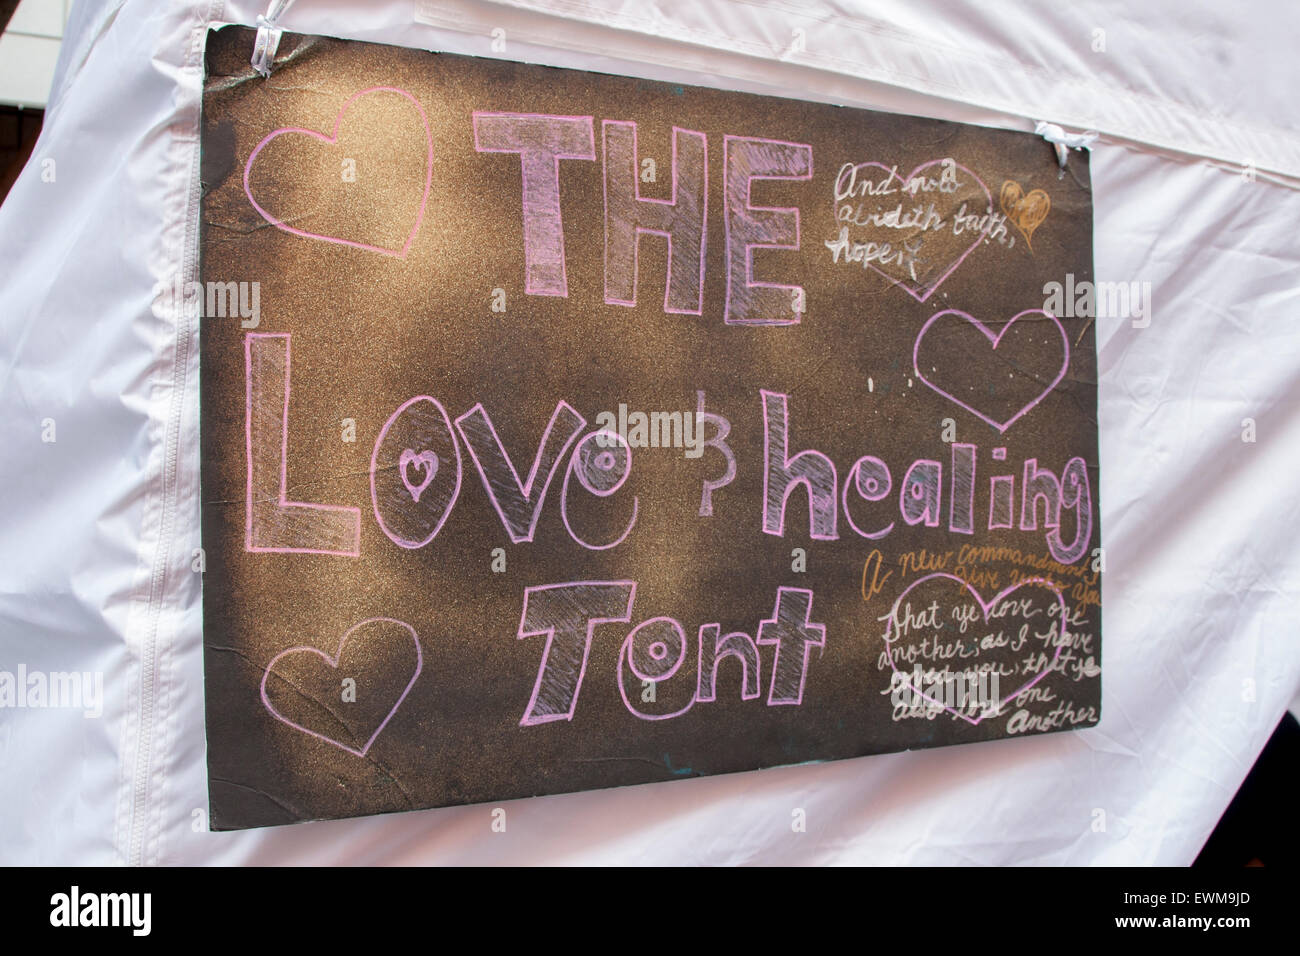 THE
Love & healing
Tent
And now
abideth faith,
hope,
A new commandment I
give unto you
That ye love one
another; as I have
loved you, that ye
also love one
another
alamy stock photo
EWM9JD
www.alamy.com